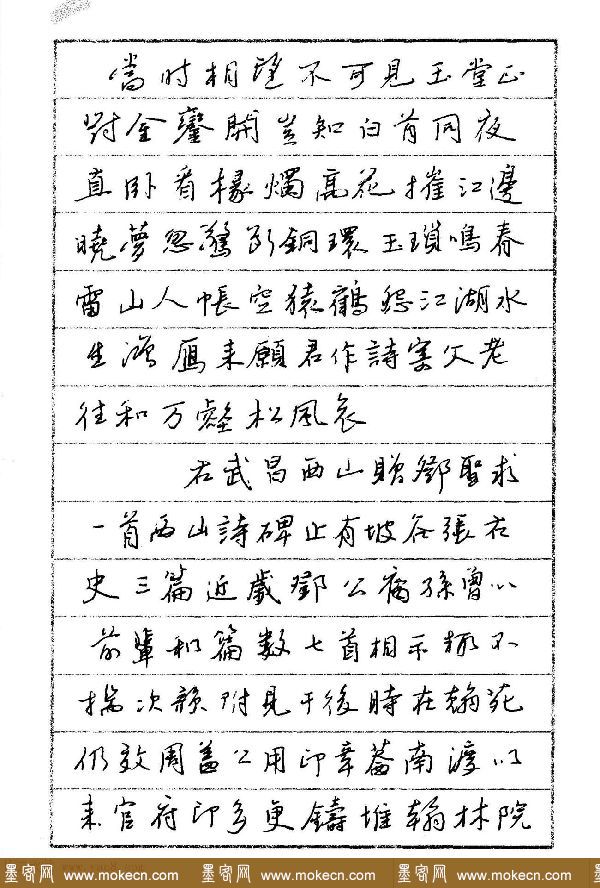 當时相望不可見玉堂正
對金鑾開豈知白首同夜
直卧看椽燭高花摧江邊
曉夢忽驚斷銅環玉瑣鳴春
雷山人帳空猿鶴怨江湖水
生鴻雁来願君作詩寄父老
往和万壑松風哀
右武昌西山贈鄧聖求
一首西山詩碑止有坡谷張右
史三篇近歲鄧公裔孫曾以
前輩和篇数七首相示輒不
揣次韻附見于後時在翰苑
仍效周益公用印章蓋南渡以
来官府印多更鑄惟翰林院
墨客网 www.mokecn.com 墨客网 www.mokecn.com 墨客网 www.mokecn.com